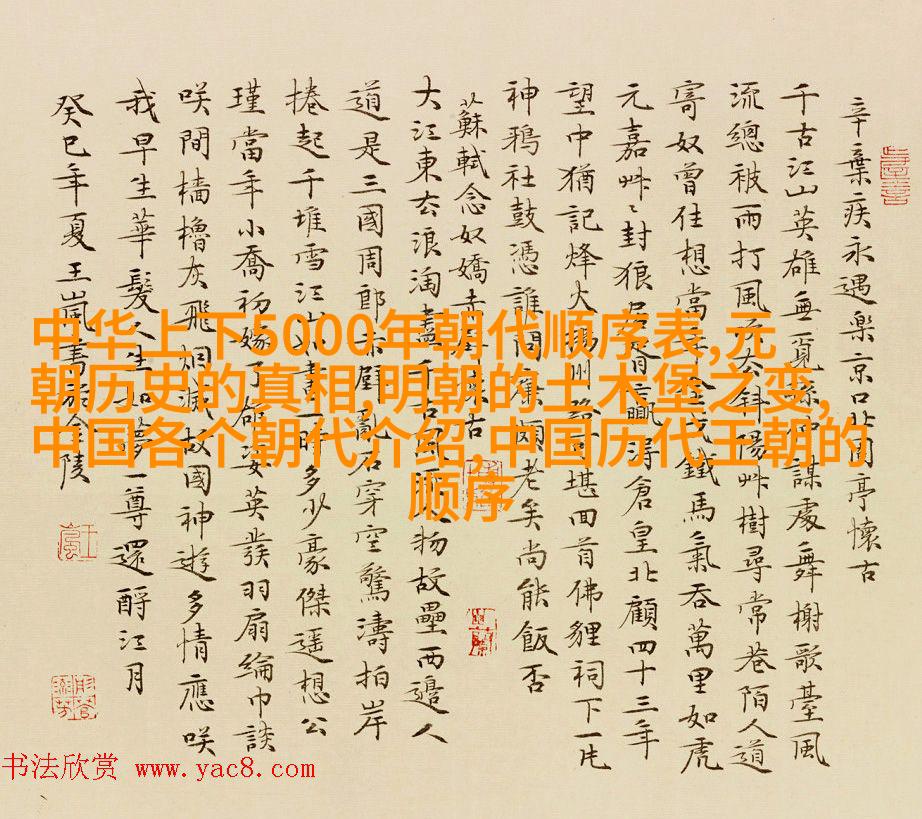 辛棄疾永遇樂京口北固亭懷古
千古江山英雄無覓孫仲謀處舞榭歌臺風
流總被雨打風吹去斜陽艸樹尋常巷陌人道
寄奴曾住想當年金戈鐵馬氣吞萬里如虎
元嘉艸〻封狼居胥贏得倉皇北顧四十三年
望中猶記烽火揚州路可堪回首佛貍祠下一片
神鴉社鼓憑誰問廉頗老矣尚能飯否
蘇軾念奴嬌赤壁懷古
大江東去浪淘盡千古風流人物故壘西邊人
道是三國周郎赤壁亂石穿空驚濤拍岸
捲起千堆雪江山如畫一時多少豪傑遥想公
瑾當年小喬初嫁了雄姿英發羽扇綸巾談
咲間檣櫓灰飛烟滅故國神遊多情應咲
我早生華髮人生如夢一尊還酹江月
癸巳年夏王嵐書於金陵
中华上下5000年朝代顺序表,元
朝历史的真相,明朝的土木堡之变,
中国各个朝代介绍,中国历代王朝的
顺序
书法欣赏 www.yac8.com